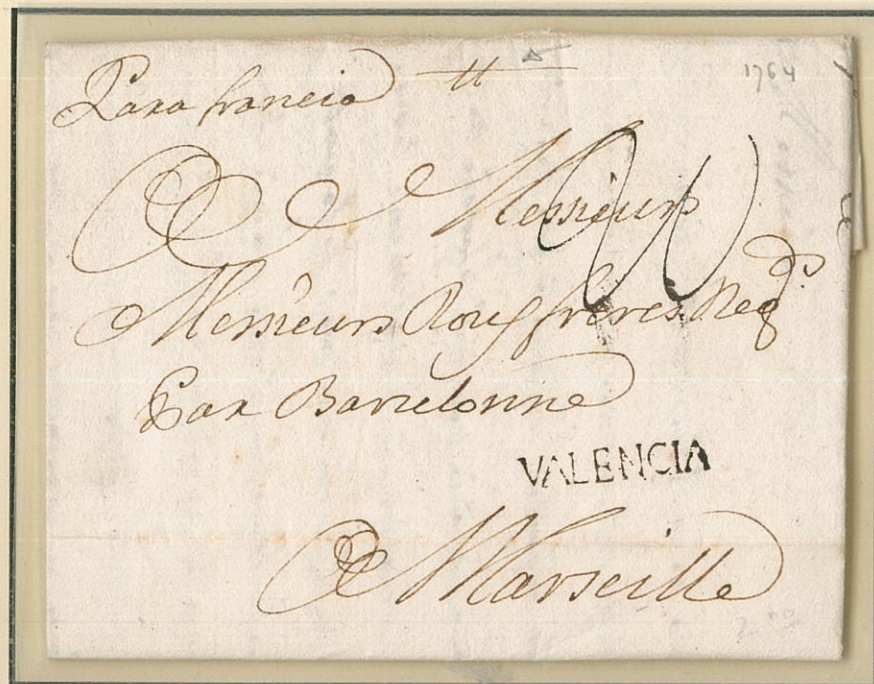 Para francia
1764
A Messieurs
Messieurs Roux freres Negts
Par Barcelonne
VALENCIA
A Marseille